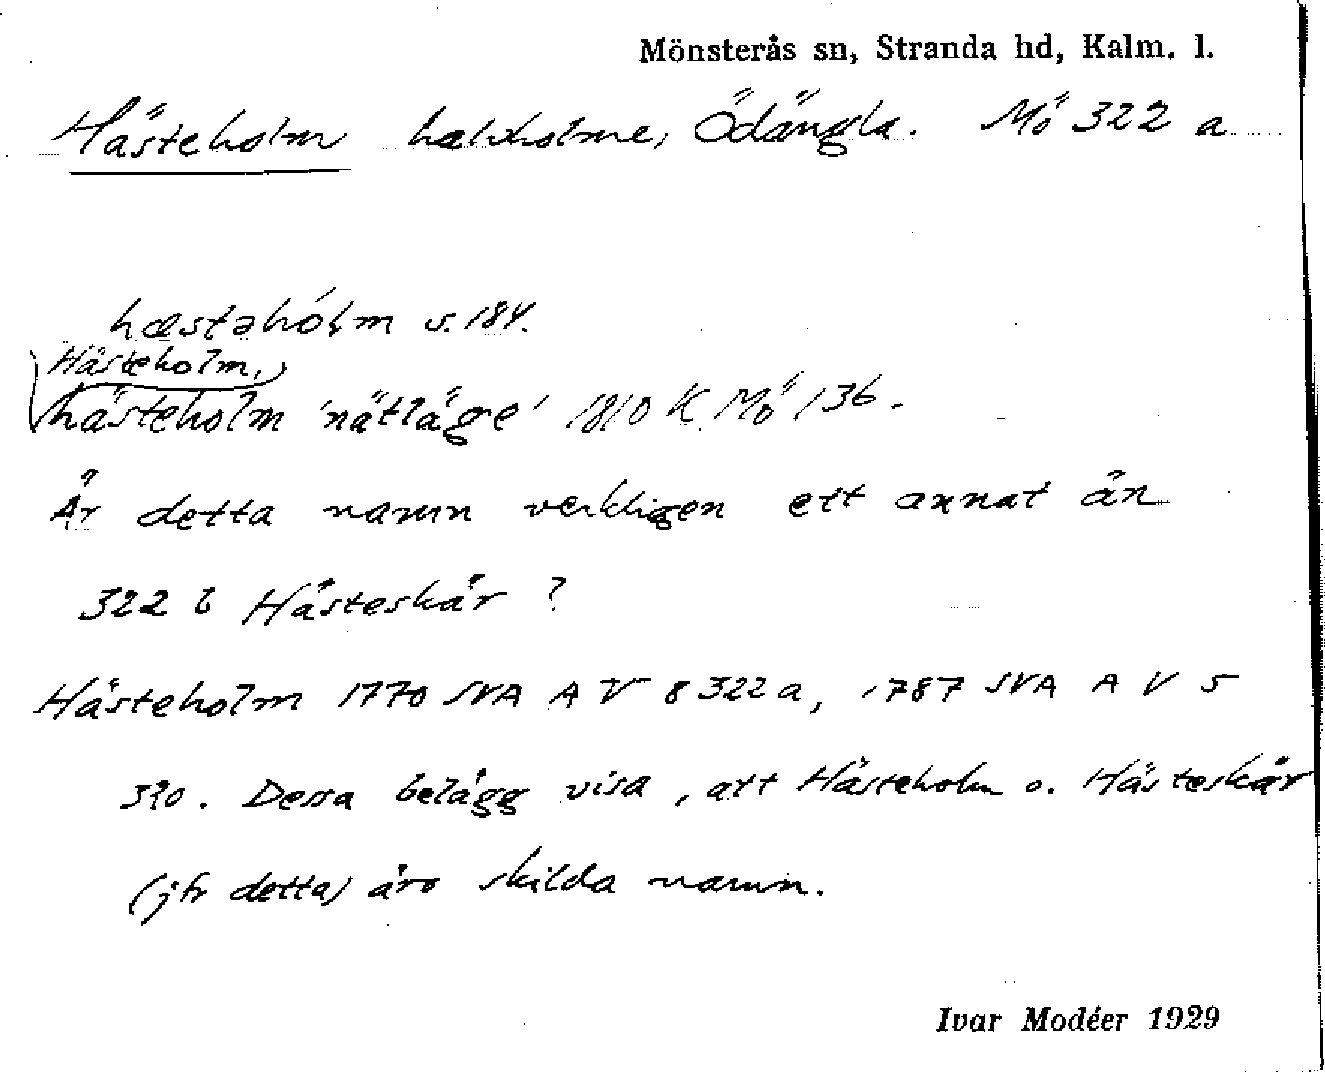 Mönsterås sn, Stranda hd, Kalm. l.
Hästeholm halvholme, Ödängla. Mö 322 a
hæstəhólm s. 184.
Hästeholm,
hästeholm 'nätläge' 1810 K Mö 136.
Är detta namn verkligen ett annat än
322 b Hästeskär?
Hästeholm 1770 SVA A V 8 322 a, 1787 SVA A V 5
390. Dessa belägg visa, att Hästeholm o. Hästeskär
(jfr detta) äro skilda namn.
Ivar Modéer 1929